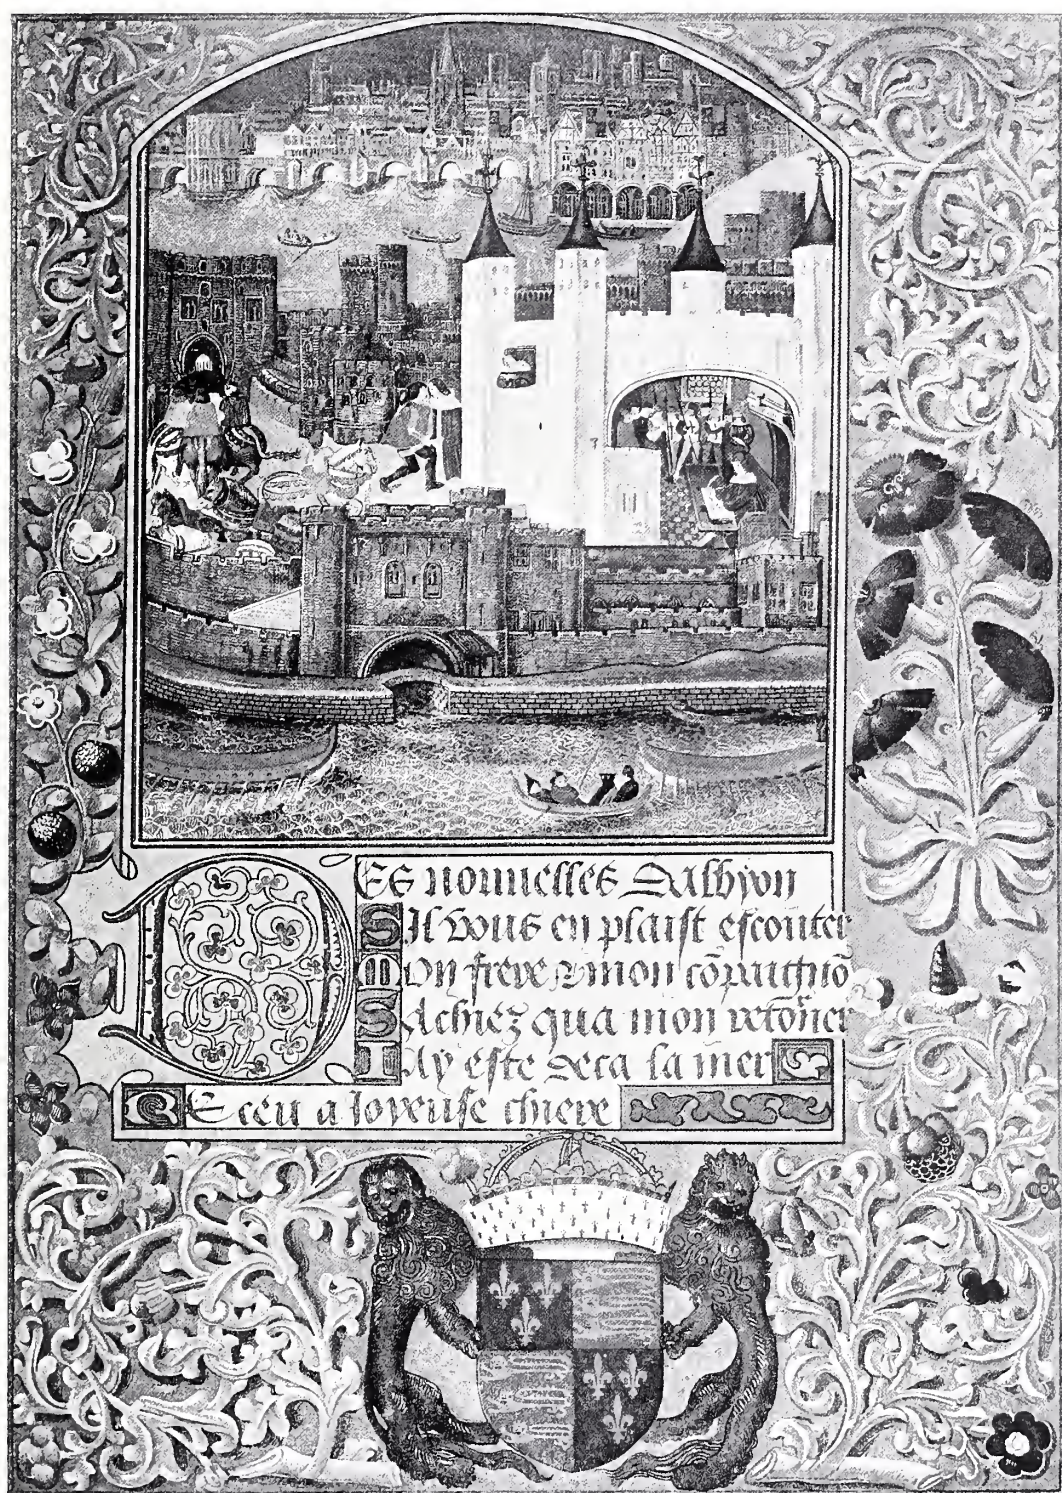 DES nouuelles Dalbyon
Sil vous en plaist escouter
Mon frere & mon cōpaignō
Sachiez qua mon retor̄ner
Iay este deca la mer
Receu a Joyeuse chiere